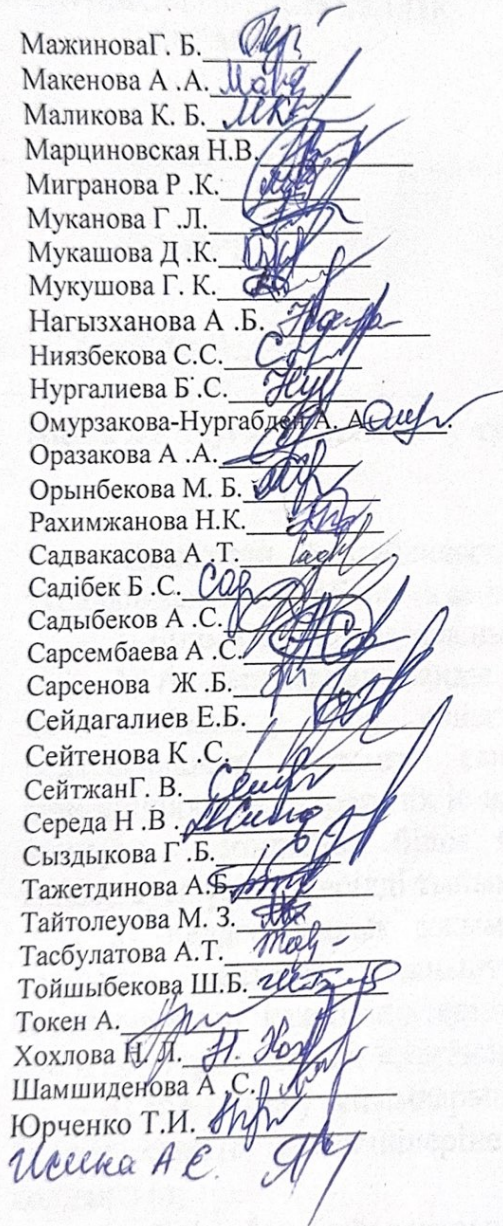 МажиноваГ. Б.
Макенова А .А.
Маликова К. Б.
Марциновская Н.В.
Мигранова Р .К.
Муканова Г .Л.
Мукашова Д .К.
Мукушова Г. К.
Нагызханова А .Б.
Ниязбекова С.С.
Нургалиева Б .С.
Омурзакова-Нургабден А. А
Оразакова А .А.
Орынбекова М. Б.
Рахимжанова Н.К.
Садвакасова А .Т.
Садібек Б .С.
Садыбеков А .С.
Сарсембаева А .С.
Сарсенова Ж .Б.
Сейдагалиев Е.Б.
Сейтенова К .С.
СейтжанГ. В.
Середа Н .В .
Сыздыкова Г .Б.
Тажетдинова А.Б.
Тайтолеуова М. З.
Тасбулатова А.Т.
Тойшыбекова Ш.Б.
Токен А.
Хохлова Н. Л.
Шамшиденова А .С.
Юрченко Т.И.
Исина А Е.